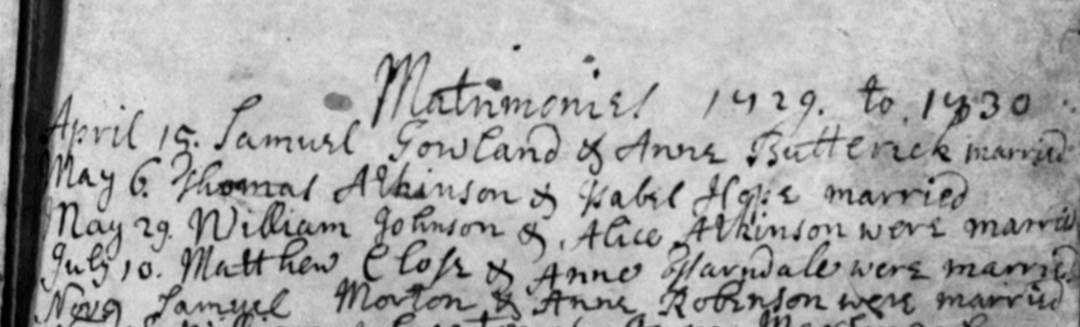 Matrimonies 1729. to 1730
April 15. Samuel Gowland & Anne Butterick married
May 6. Thomas Atkinson & Isabel Hope married
May 29. William Johnson & Alice Atkinson were married
July 10. Matthew Close & Anne Barndale were married
Nov 9 Samuel Morton & Anne Robinson were married
William